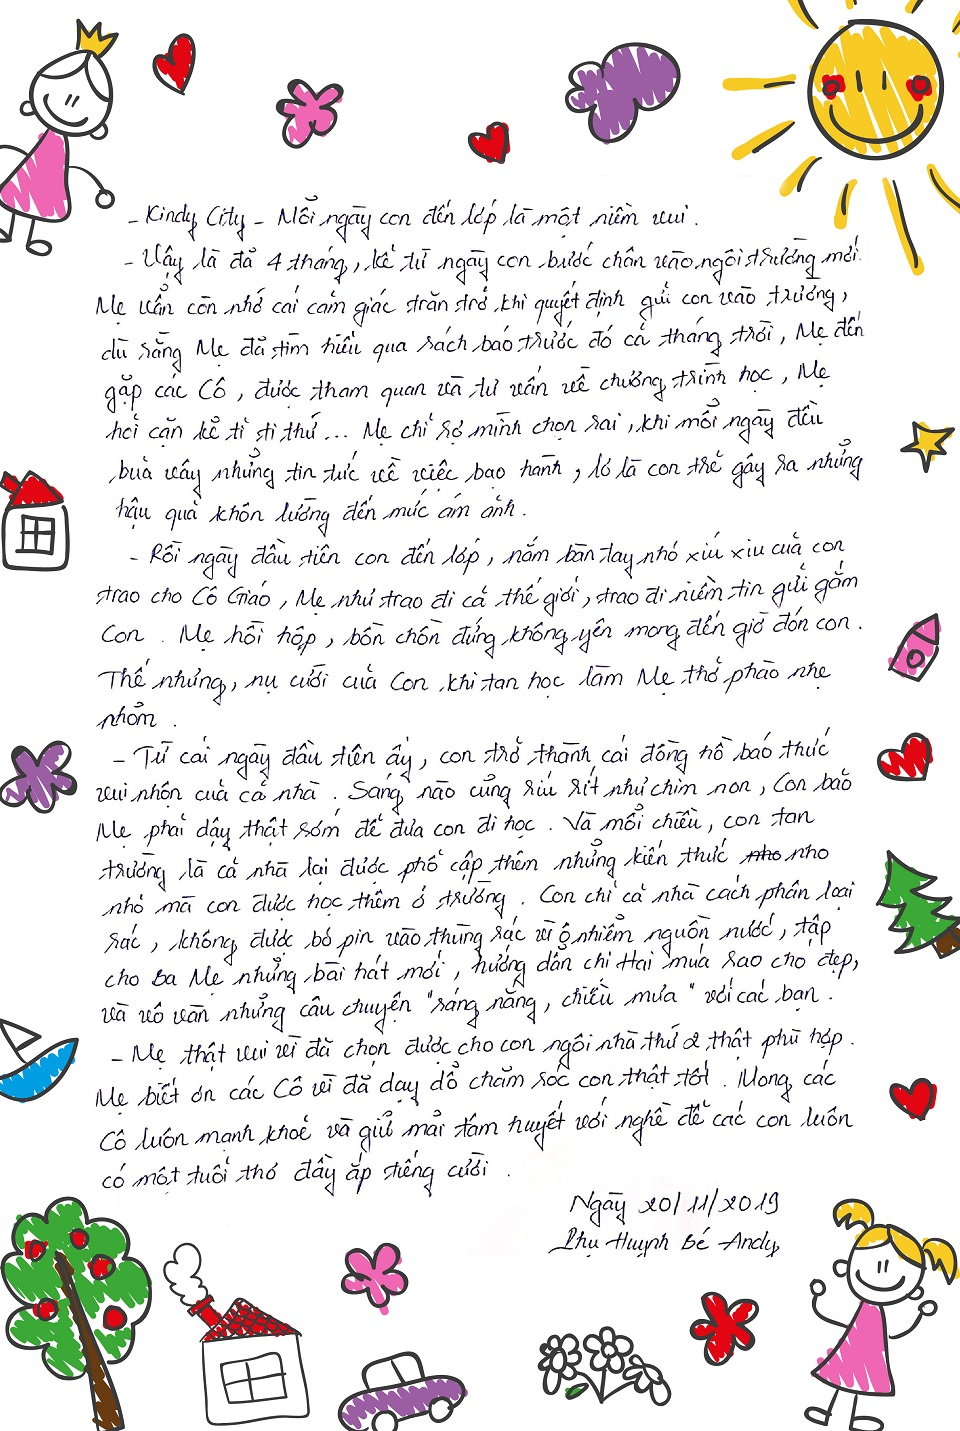 - Kindy City - Mỗi ngày con đến lớp là một niềm vui.
- Vậy là đã 4 tháng, kể từ ngày con bước chân vào ngôi trường mới.
Mẹ vẫn còn nhớ cái cảm giác trăn trở khi quyết định gửi con vào trường,
dù rằng Mẹ đã tìm hiểu qua sách báo trước đó cả tháng trời, Mẹ đến
gặp các Cô, được tham quan và tư vấn về chương trình học, Mẹ
hỏi cặn kẽ tỉ tỉ thứ... Mẹ chỉ sợ mình chọn sai, khi mỗi ngày đều
bủa vây những tin tức về việc bạo hành, lo là con thể gây ra những
hậu quả khôn lường đến mức ám ảnh.
- Rồi ngày đầu tiên con đến lớp, nắm bàn tay nhỏ xíu xiu của con
trao cho Cô Giáo, Mẹ như trao đi cả thế giới, trao đi niềm tin gửi gắm
Con. Mẹ hồi hộp, bồn chồn đứng không yên mong đến giờ đón con.
Thế nhưng, nụ cười của Con khi tan học làm Mẹ thở phào nhẹ
nhõm.
- Từ cái ngày đầu tiên ấy, con trở thành cái đồng hồ báo thức
vui nhộn của cả nhà. Sáng nào cũng ríu rít như chim non, Con bảo
Mẹ phải dậy thật sớm để đưa con đi học. Và mỗi chiều, con tan
trường là cả nhà lại được phổ cập thêm những kiến thức nho
nhỏ mà con được học thêm ở trường. Con chỉ cả nhà cách phân loại
rác, không được bỏ pin vào thùng rác vì ô nhiễm nguồn nước, tập
cho Ba Mẹ những bài hát mới, hướng dẫn chị Hai múa sao cho đẹp,
và vô vàn những câu chuyện "sáng nắng, chiều mưa" với các bạn.
- Mẹ thật vui vì đã chọn được cho con ngôi nhà thứ 2 thật phù hợp.
Mẹ biết ơn các Cô vì đã dạy dỗ chăm sóc con thật tốt. Mong các
Cô luôn mạnh khoẻ và giữ mãi tâm huyết với nghề để các con luôn
có một tuổi thơ đầy ắp tiếng cười.
Ngày 20/11/2019
Phụ Huynh Bé Andy